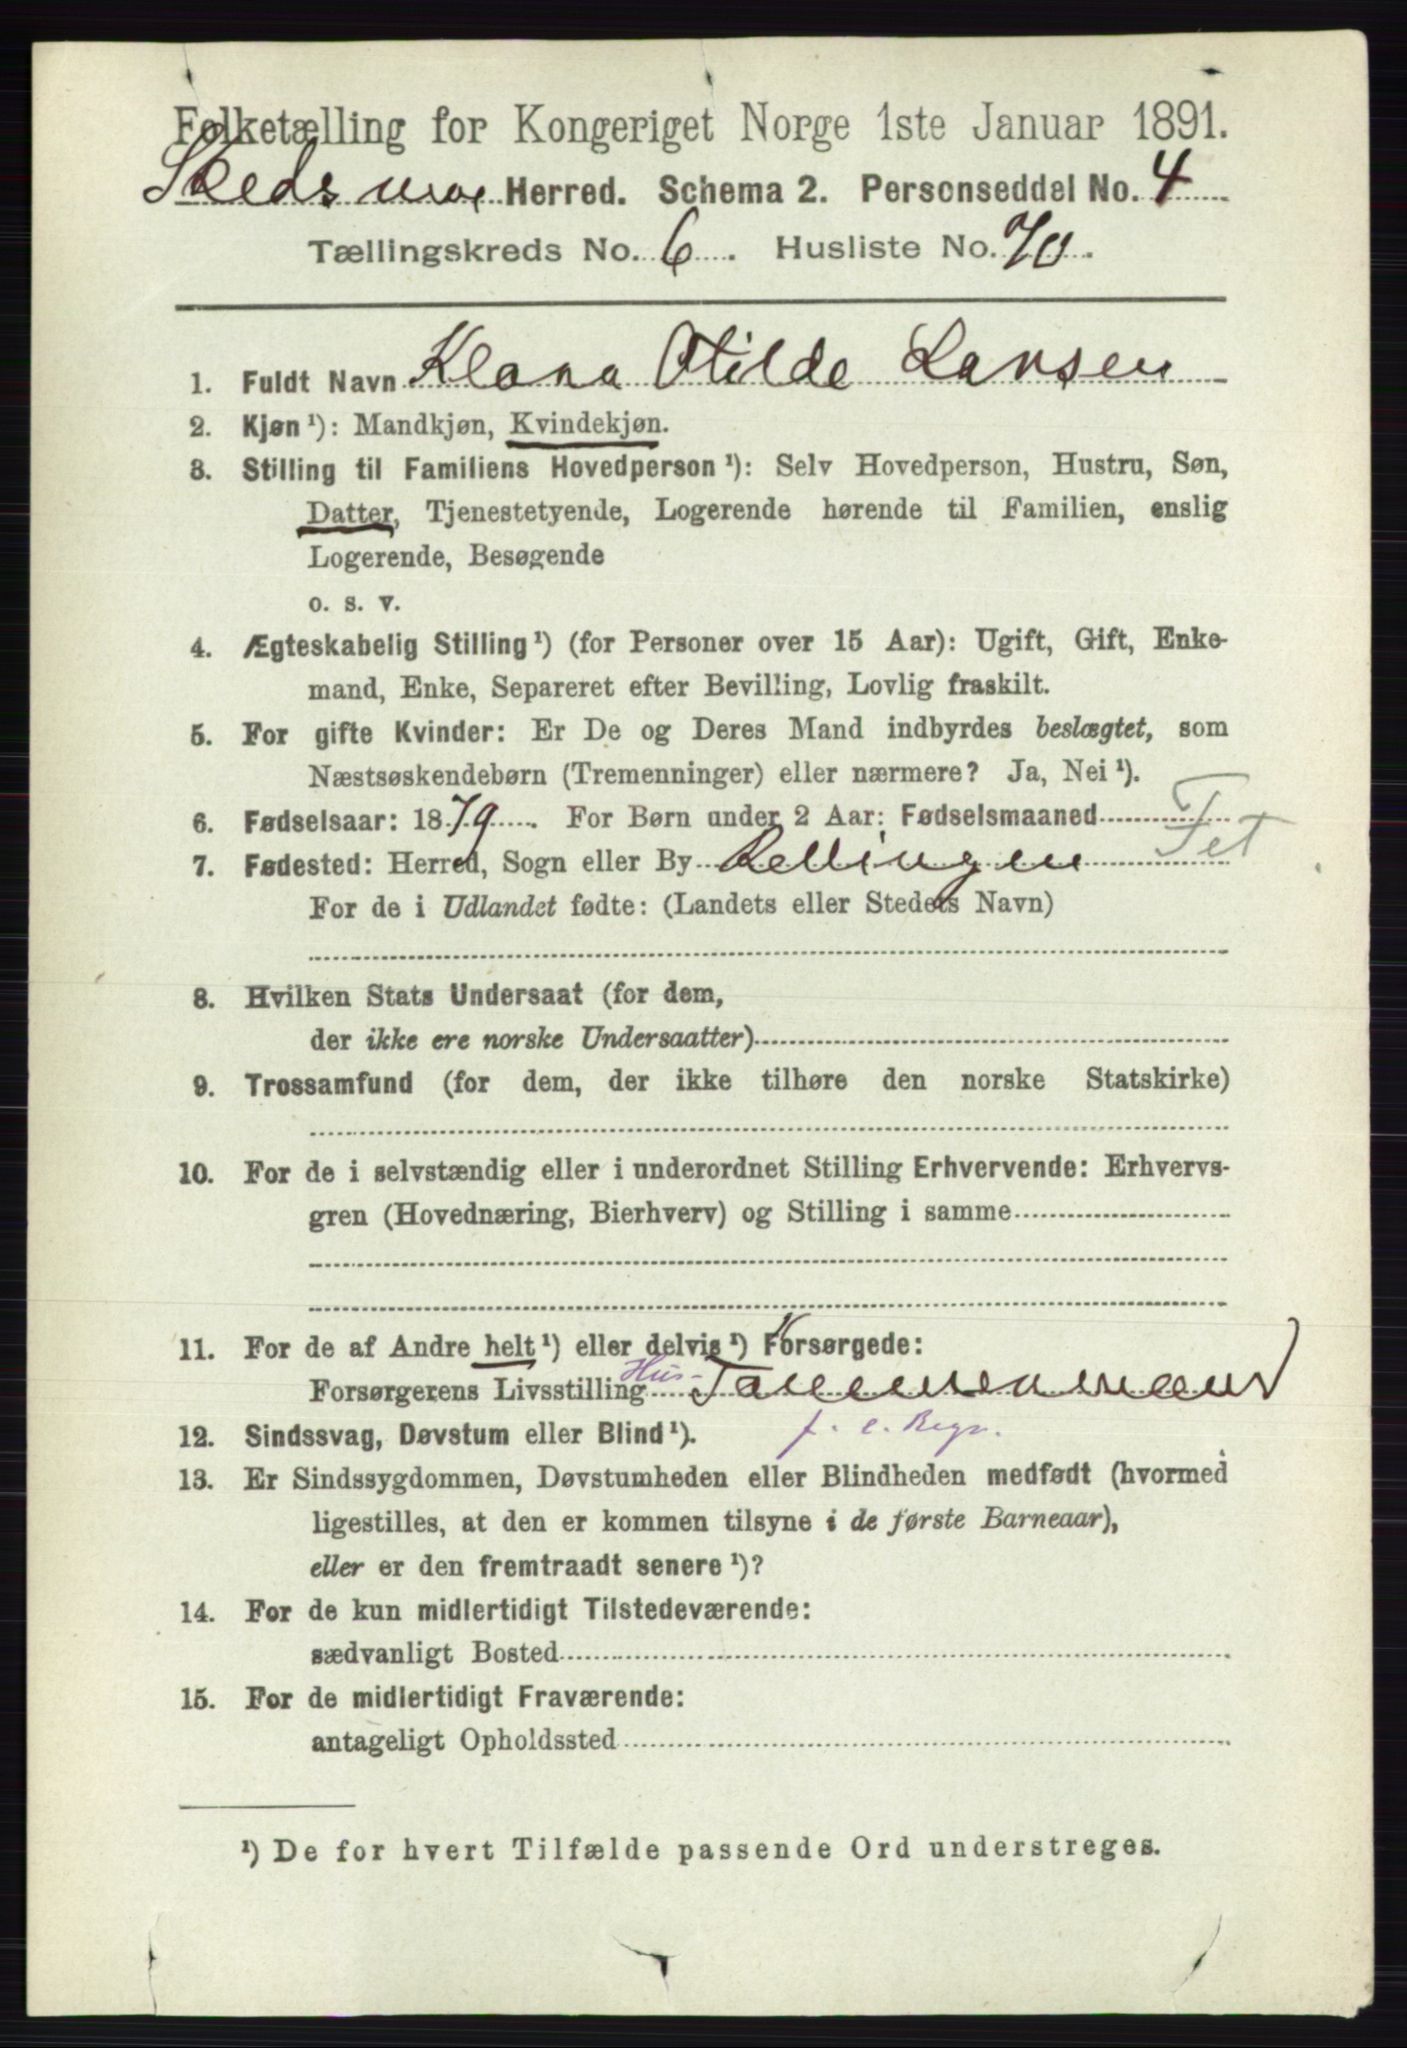 Folketælling for Kongeriget Norge 1ste Januar 1891.
Skedsmoe Herred. Schema 2. Personseddel No. 4
Tællingskreds No. 6. Husliste No. 70.
1. Fuldt Navn Klara Otilde Larsen
2. Kjøn¹): Mandkjøn, Kvindekjøn.
3. Stilling til Familiens Hovedperson¹): Selv Hovedperson, Hustru, Søn,
Datter, Tjenestetyende, Logerende hørende til Familien, enslig
Logerende, Besøgende
o. s. v.
4. Ægteskabelig Stilling¹) (for Personer over 15 Aar): Ugift, Gift, Enke-
mand, Enke, Separeret efter Bevilling, Lovlig fraskilt.
5. For gifte Kvinder: Er De og Deres Mand indbyrdes beslægtet, som
Næstsøskendebørn (Tremenninger) eller nærmere? Ja, Nei¹).
6. Fødselsaar: 1879. For Børn under 2 Aar: Fødselsmaaned
7. Fødested: Herred, Sogn eller By Rellingen Fet
For de i Udlandet fødte: (Landets eller Stedets Navn)
8. Hvilken Stats Undersaat (for dem,
der ikke ere norske Undersaatter)
9. Trossamfund (for dem, der ikke tilhøre den norske Statskirke)
10. For de i selvstændig eller i underordnet Stilling Erhvervende: Erhvervs-
gren (Hovednæring, Bierhverv) og Stilling i samme
11. For de af Andre helt¹) eller delvis¹) Forsørgede:
Forsørgerens Livsstilling Hus- Tømmermand
f. e. Regn.
12. Sindssvag, Døvstum eller Blind¹).
13. Er Sindssygdommen, Døvstumheden eller Blindheden medfødt (hvormed
ligestilles, at den er kommen tilsyne i de første Barneaar),
eller er den fremtraadt senere¹)?
14. For de kun midlertidigt Tilstedeværende:
sædvanligt Bosted
15. For de midlertidigt Fraværende:
antageligt Opholdssted
¹) De for hvert Tilfælde passende Ord understreges.